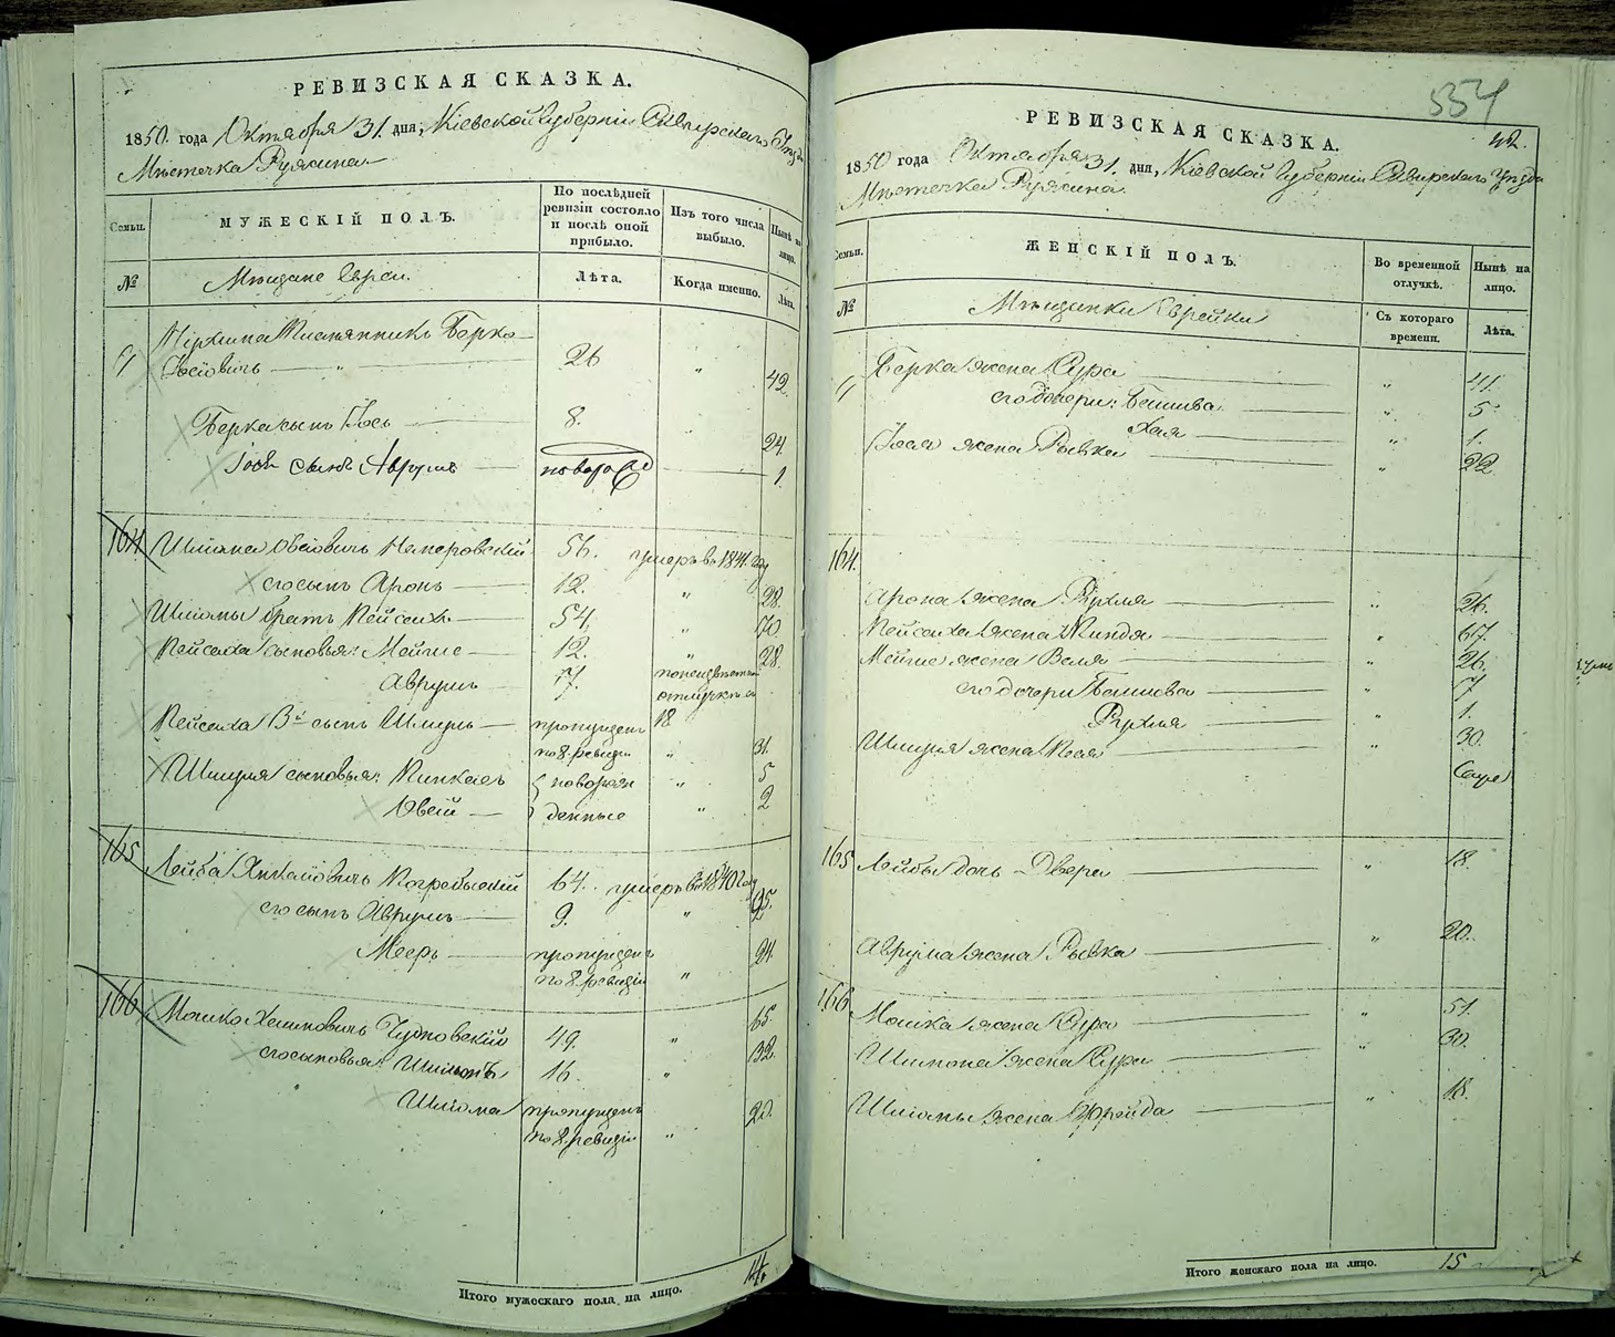 РЕВИЗСКАЯ СКАЗКА.
1850. года Октября 31. дня, Кіевской Губерніи Сквирскаго Уѣзда
Мѣстечка Ружина
Семьи.
МУЖЕСКІЙ ПОЛЪ.
По послѣдней ревизіи состояло и послѣ оной прибыло.
Изъ того числа выбыло.
Нынѣ на лицо.
№
Мѣщане Евреи.
Лѣта.
Когда именно.
Лѣта.
Племянникъ Берко
Іосіовичь — " 26 " 42.
Берка сынъ Іось — 8. " 24.
Іося сынъ Аврумъ — новорож — 1
164 Шліома Овсіовичь Немеровскій 56. умеръ въ 1841. году
его сынъ Аронъ — 12. " 28.
Шліомы братъ Пейсахъ — 54. " 70.
Пейсаха сыновья: Мейше — 12. " 28.
Аврумъ — 7. въ
отлучкѣ съ
Пейсаха 3й сынъ Шмуль — пропущенъ 18
по 8. ревизіи " 31.
Шмуля сыновья: Пинкасъ { новорож " 5
Овсій — } денные " 2
165 Лейба Янкаіовичь Погребыскій 64. умеръ въ 1840 году
его сынъ Аврумъ — 9. " 25.
Мееръ — пропущенъ 24.
по 8. ревизіи "
166 Мошко Хаимовичь Чудновскій 49. " 65.
его сыновья: Шимонъ 16. " 32.
Шліома пропущенъ 20.
по 8. ревизіи "
Итого мужескаго пола на лицо. 14.
554
42.
РЕВИЗСКАЯ СКАЗКА.
1850 года Октября 31. дня, Кіевской Губерніи Сквирскаго Уѣзда
Мѣстечка Ружина.
Семьи.
ЖЕНСКІЙ ПОЛЪ.
Во временной отлучкѣ.
Нынѣ на лицо.
№
Мѣщанки Еврейки
Съ котораго времени.
Лѣта.
Берка жена Сура — " 41.
его дочери: Башива — " 5
Хая — " 1.
Іося жена Рывка — " 22
164.
Арона жена Рухля — " 26.
Пейсаха жена Миндя — " 67.
Мейше жена Веля — " 26.
его дочери Башива — " 7
Рухля — " 1.
Шмуля жена Песя — " 30.
165 Лейбы дочь Двера — " 18.
Аврума жена Рывка — " 20.
166 Мошка жена Сура — " 51.
Шимона жена Сура — " 30.
Шліомы жена Фрейда — " 18.
Итого женскаго пола на лицо. 15